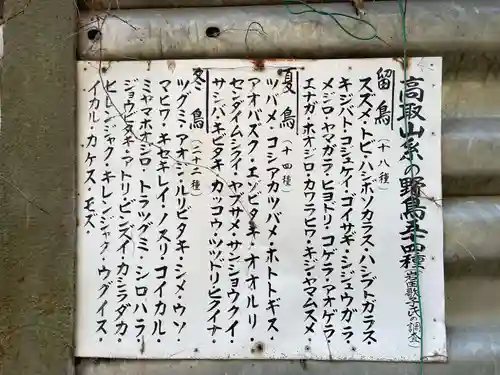 高取山系の野鳥五四種
岩田敬子氏の調査
留鳥(十八種)
スズメ・トビ・ハシボソカラス・ハシブトガラス
キジバト・コジュケイ・ゴイサギ・シジュウガラ・
メジロ・ヤマガラ・ヒヨドリ・コゲラ・アオゲラ
エナガ・ホオジロ・カワラヒワ・キジ・ヤマムスメ
夏鳥(十四種)
ツバメ・コシアカツバメ・ホトトギス・
アオバズク・エゾビタキ・オオルリ
センダイムシクイ・ヤブサメ・サンショウクイ
サンバ・キビタキ・カッコウ・ツツドリ・ヒクイナ
冬鳥(二十二種)
ツグミ・アオジ・ルリビタキ・シメ・ウソ
マヒワ・キセキレイ・ノスリ・コイカル・
ミヤマホオジロ・トラツグミ・シロハラ・
ジョウビタキ・アトリ・ビンズイ・カシラダカ・
ヒレンジャク・キレンジャク・ウグイス・
イカル・カケス・モズ・